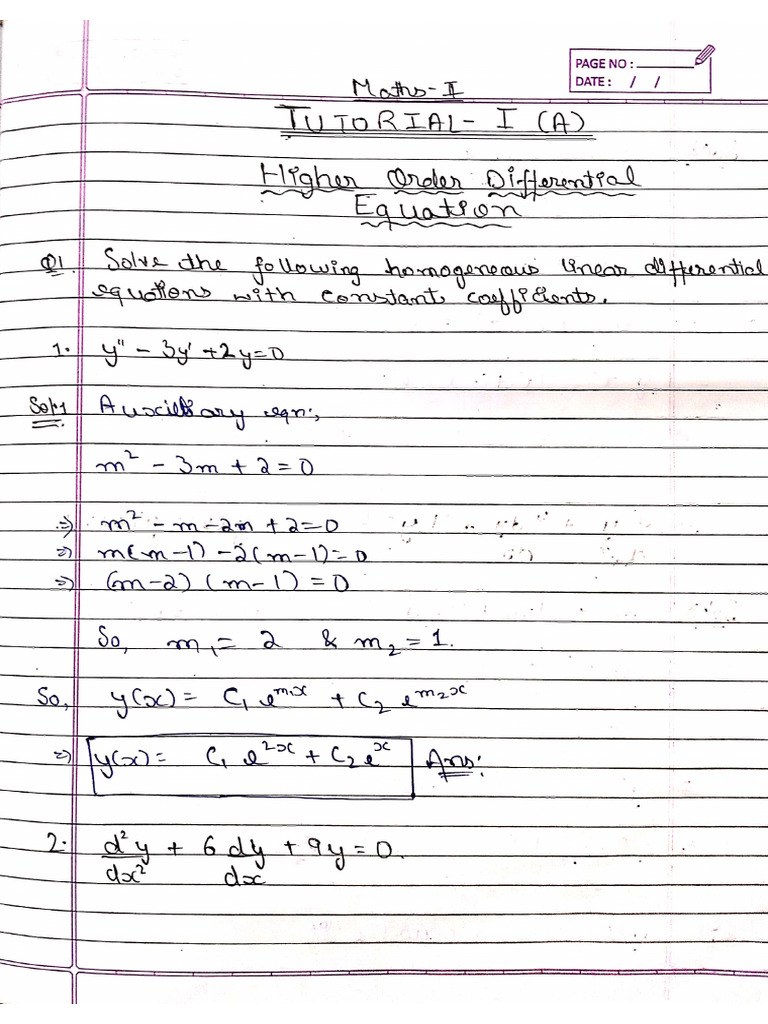 PAGE NO :
DATE : / /
Maths-II
TUTORIAL- I (A)
Higher Order Differential
Equation
Q1. Solve the following homogeneous linear differential
equations with constant coefficients.
1. y'' - 3y' + 2y = 0
Sol:1 Auxiliary eqn:,
m² - 3m + 2 = 0
⇒) m² - m - 2m + 2 = 0
⇒) m(m-1) - 2(m-1) = 0
⇒) (m-2) (m-1) = 0
So, m₁ = 2 & m₂ = 1.
So, y(x) = C₁ e^m₁x + C₂ e^m₂x
⇒) y(x) = C₁ e^2x + C₂ e^x Ans:
2. d²y/dx² + 6 dy/dx + 9y = 0.